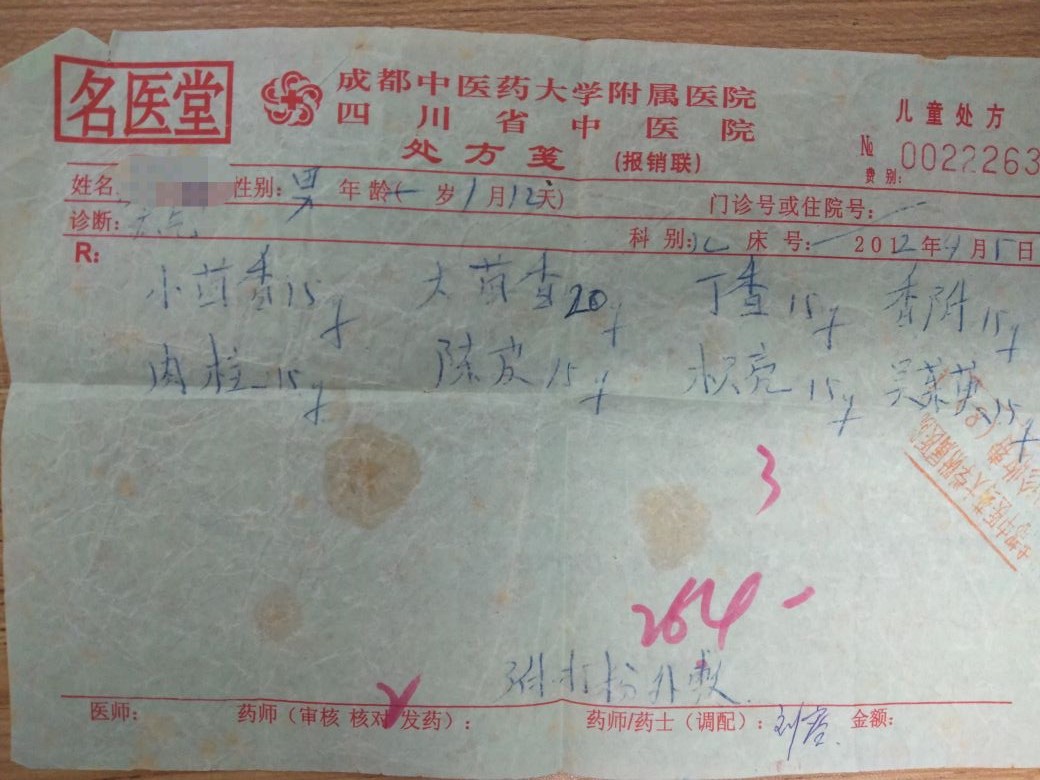 名医堂
成都中医药大学附属医院
四川省中医院
处方笺 (报销联)
儿童处方
№ 0022263
费别:
姓名: 性别: 男 年龄(一岁1月12天)
门诊号或住院号:
诊断: 
科别: 儿 床号: 一 2012年4月5日
R:
小茴香15g 大茴香20g 丁香15g 香附15g
肉桂15g 陈皮15g 枳壳15g 吴茱萸15g
3
264-
附打粉外敷
医师: 药师(审核 核对 发药): 药师/药士(调配): 金额: